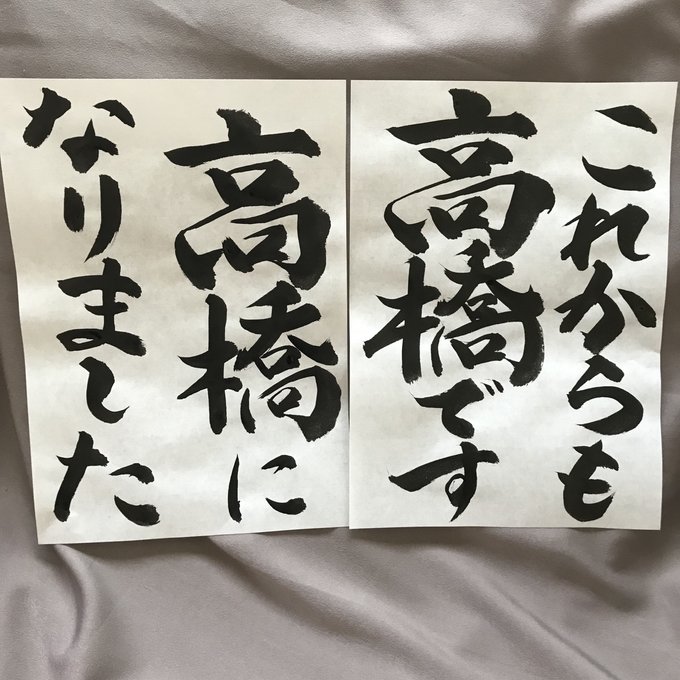 これからも
高橋です
高橋に
なりました